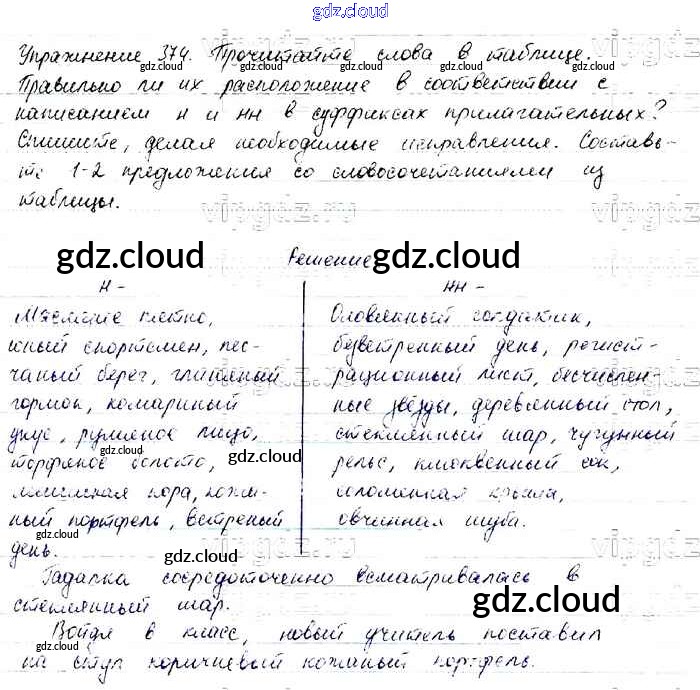 gdz.cloud
Упражнение 374. Прочитайте слова в таблице.
Правильно ли их расположение в соответствии с
написанием н и нн в суффиксах прилагательных?
Спишите, делая необходимые исправления. Составь-
те 1-2 предложения со словосочетаниями из
таблицы.
Решение
gdz.cloud gdz.cloud
н - нн -
пятно, Оловянный солдатик,
юный спортсмен, пес- безветренный день, регист-
чаный берег, глиняный рационный лист, бесчислен-
горшок, комариный ные звёзды, деревянный стол,
укус, румяное лицо, стеклянный шар, чугунный
торфяное болото, рельс, клюквенный сок,
мышиная нора, кожа- соломенная крыша,
ный портфель, ветреный овчинная шуба.
день.
Гадалка сосредоточенно всматривалась в
стеклянный шар.
Войдя в класс, новый учитель поставил
на стул коричневый кожаный портфель.
gdz.cloud